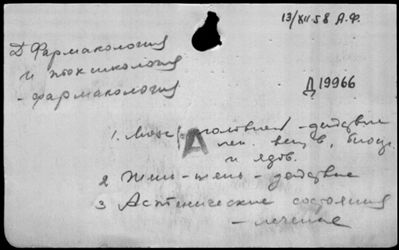 13/XII 58 А.Ф.
Д Фармакология
и токсикология
- фармакология
Д 19966
1. Мозг головной - действие
лек. веществ,
и ядов.
А
2 Жень-шень - действие
3 Астенические состояния
- лечение